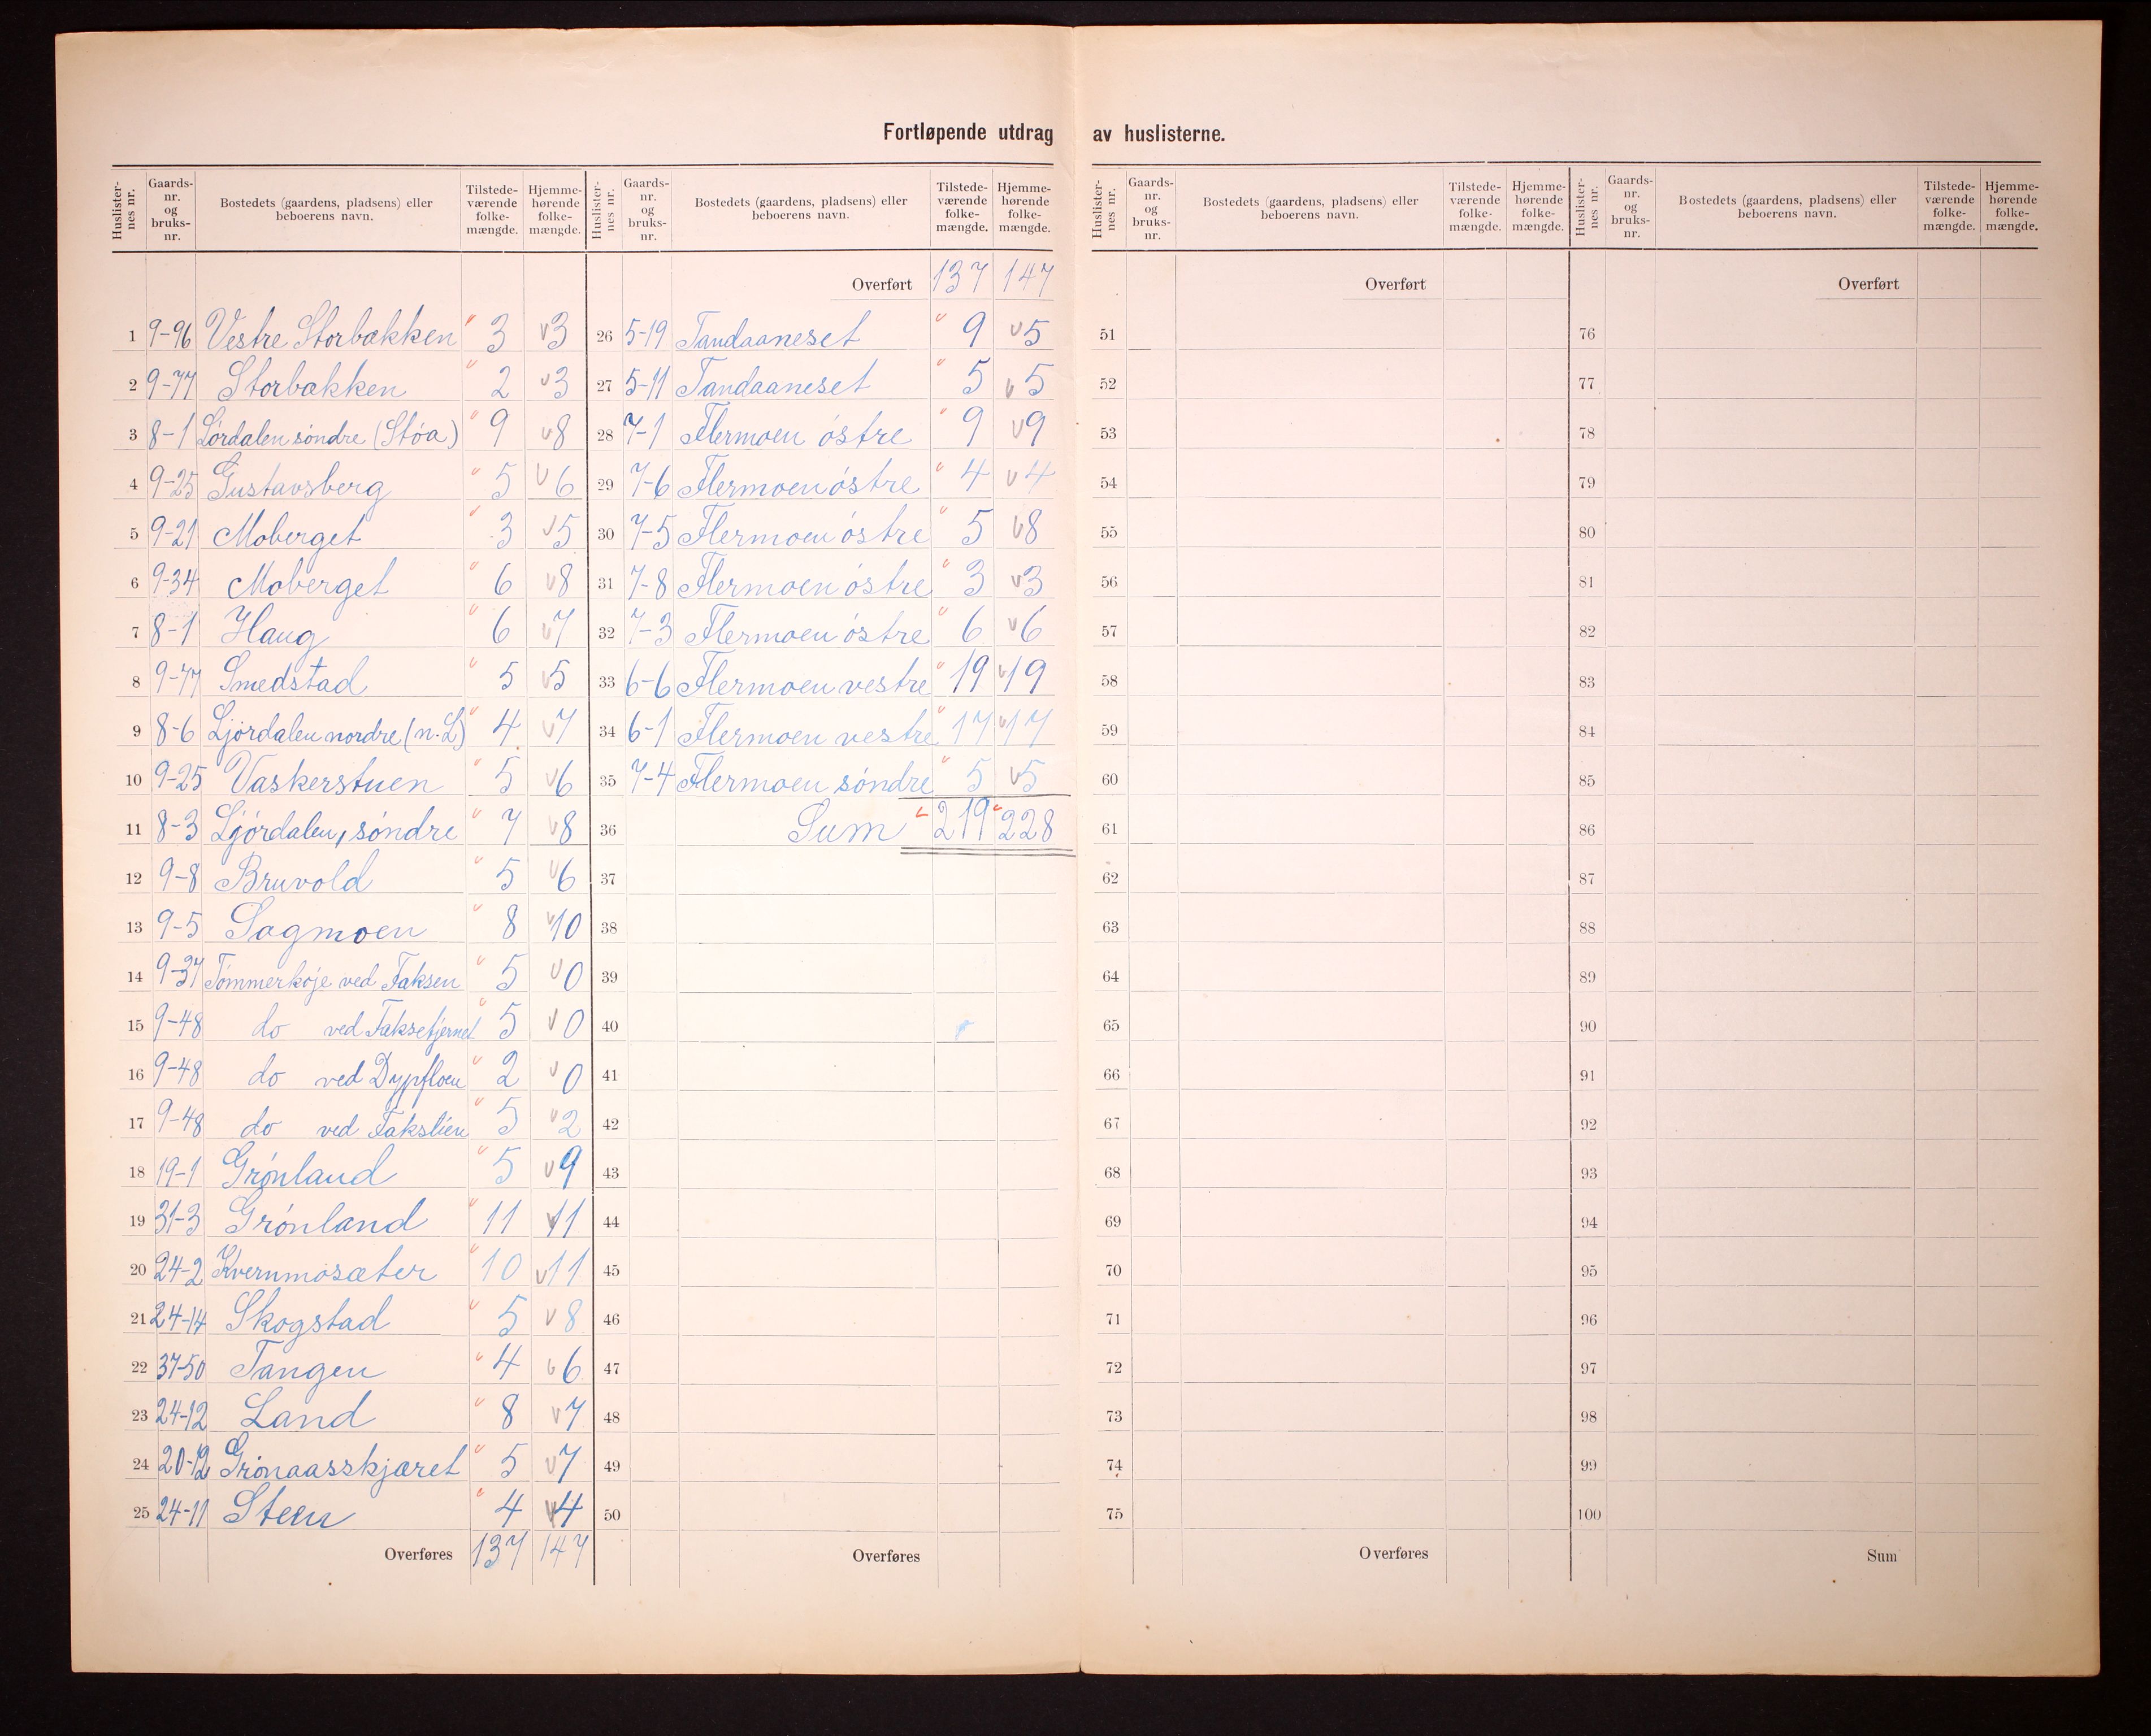 Fortløpende utdrag av huslisterne.
Huslister-nes nr. Gaards-nr. og bruks-nr. Bostedets (gaardens, pladsens) eller beboerens navn. Tilstede-værende folke-mængde. Hjemme-hørende folke-mængde.
1 9-96 Vestre Storbækken 3 3
2 9-77 Storbækken 2 3
3 8-1 Lørdalen søndre (Støa) 9 8
4 9-25 Gustavsberg 5 6
5 9-21 Moberget 3 5
6 9-34 Moberget 6 8
7 8-1 Haug 6 7
8 9-77 Smedstad 5 5
9 8-6 Ljørdalen nordre (n. L) 4 7
10 9-25 Vaskerstuen 5 6
11 8-3 Ljørdalen, søndre 7 8
12 9-8 Bruvold 5 6
13 9-5 Sagmoen 8 10
14 9-37 Tømmerkøje ved Faksen 5 0
15 9-48 do ved Faksefjernet 5 0
16 9-48 do ved Dypfloen 2 0
17 9-48 do ved Fakslien 5 2
18 19-1 Grønland 5 9
19 31-3 Grønland 11 11
20 24-2 Kvernmosæter 10 11
21 24-14 Skogstad 5 8
22 37-50 Tangen 4 6
23 24-12 Land 8 7
24 20-12 Grønaasskjæret 5 7
25 24-11 Steen 4 4
Overføres 137 147
Huslister-nes nr. Gaards-nr. og bruks-nr. Bostedets (gaardens, pladsens) eller beboerens navn. Tilstede-værende folke-mængde. Hjemme-hørende folke-mængde.
Overført 137 147
26 5-19 Tandaaneset 9 5
27 5-11 Tandaaneset 5 5
28 7-1 Flermoen østre 9 9
29 7-6 Flermoen østre 4 4
30 7-5 Flermoen østre 5 8
31 7-8 Flermoen østre 3 3
32 7-3 Flermoen østre 6 6
33 6-6 Flermoen vestre 19 19
34 6-1 Flermoen vestre 17 17
35 7-4 Flermoen søndre 5 5
36 Sum 219 228
37
38
39
40
41
42
43
44
45
46
47
48
49
50
Overføres
Huslister-nes nr. Gaards-nr. og bruks-nr. Bostedets (gaardens, pladsens) eller beboerens navn. Tilstede-værende folke-mængde. Hjemme-hørende folke-mængde.
Overført
51
52
53
54
55
56
57
58
59
60
61
62
63
64
65
66
67
68
69
70
71
72
73
74
75
Overføres
Huslister-nes nr. Gaards-nr. og bruks-nr. Bostedets (gaardens, pladsens) eller beboerens navn. Tilstede-værende folke-mængde. Hjemme-hørende folke-mængde.
Overført
76
77
78
79
80
81
82
83
84
85
86
87
88
89
90
91
92
93
94
95
96
97
98
99
100
Sum